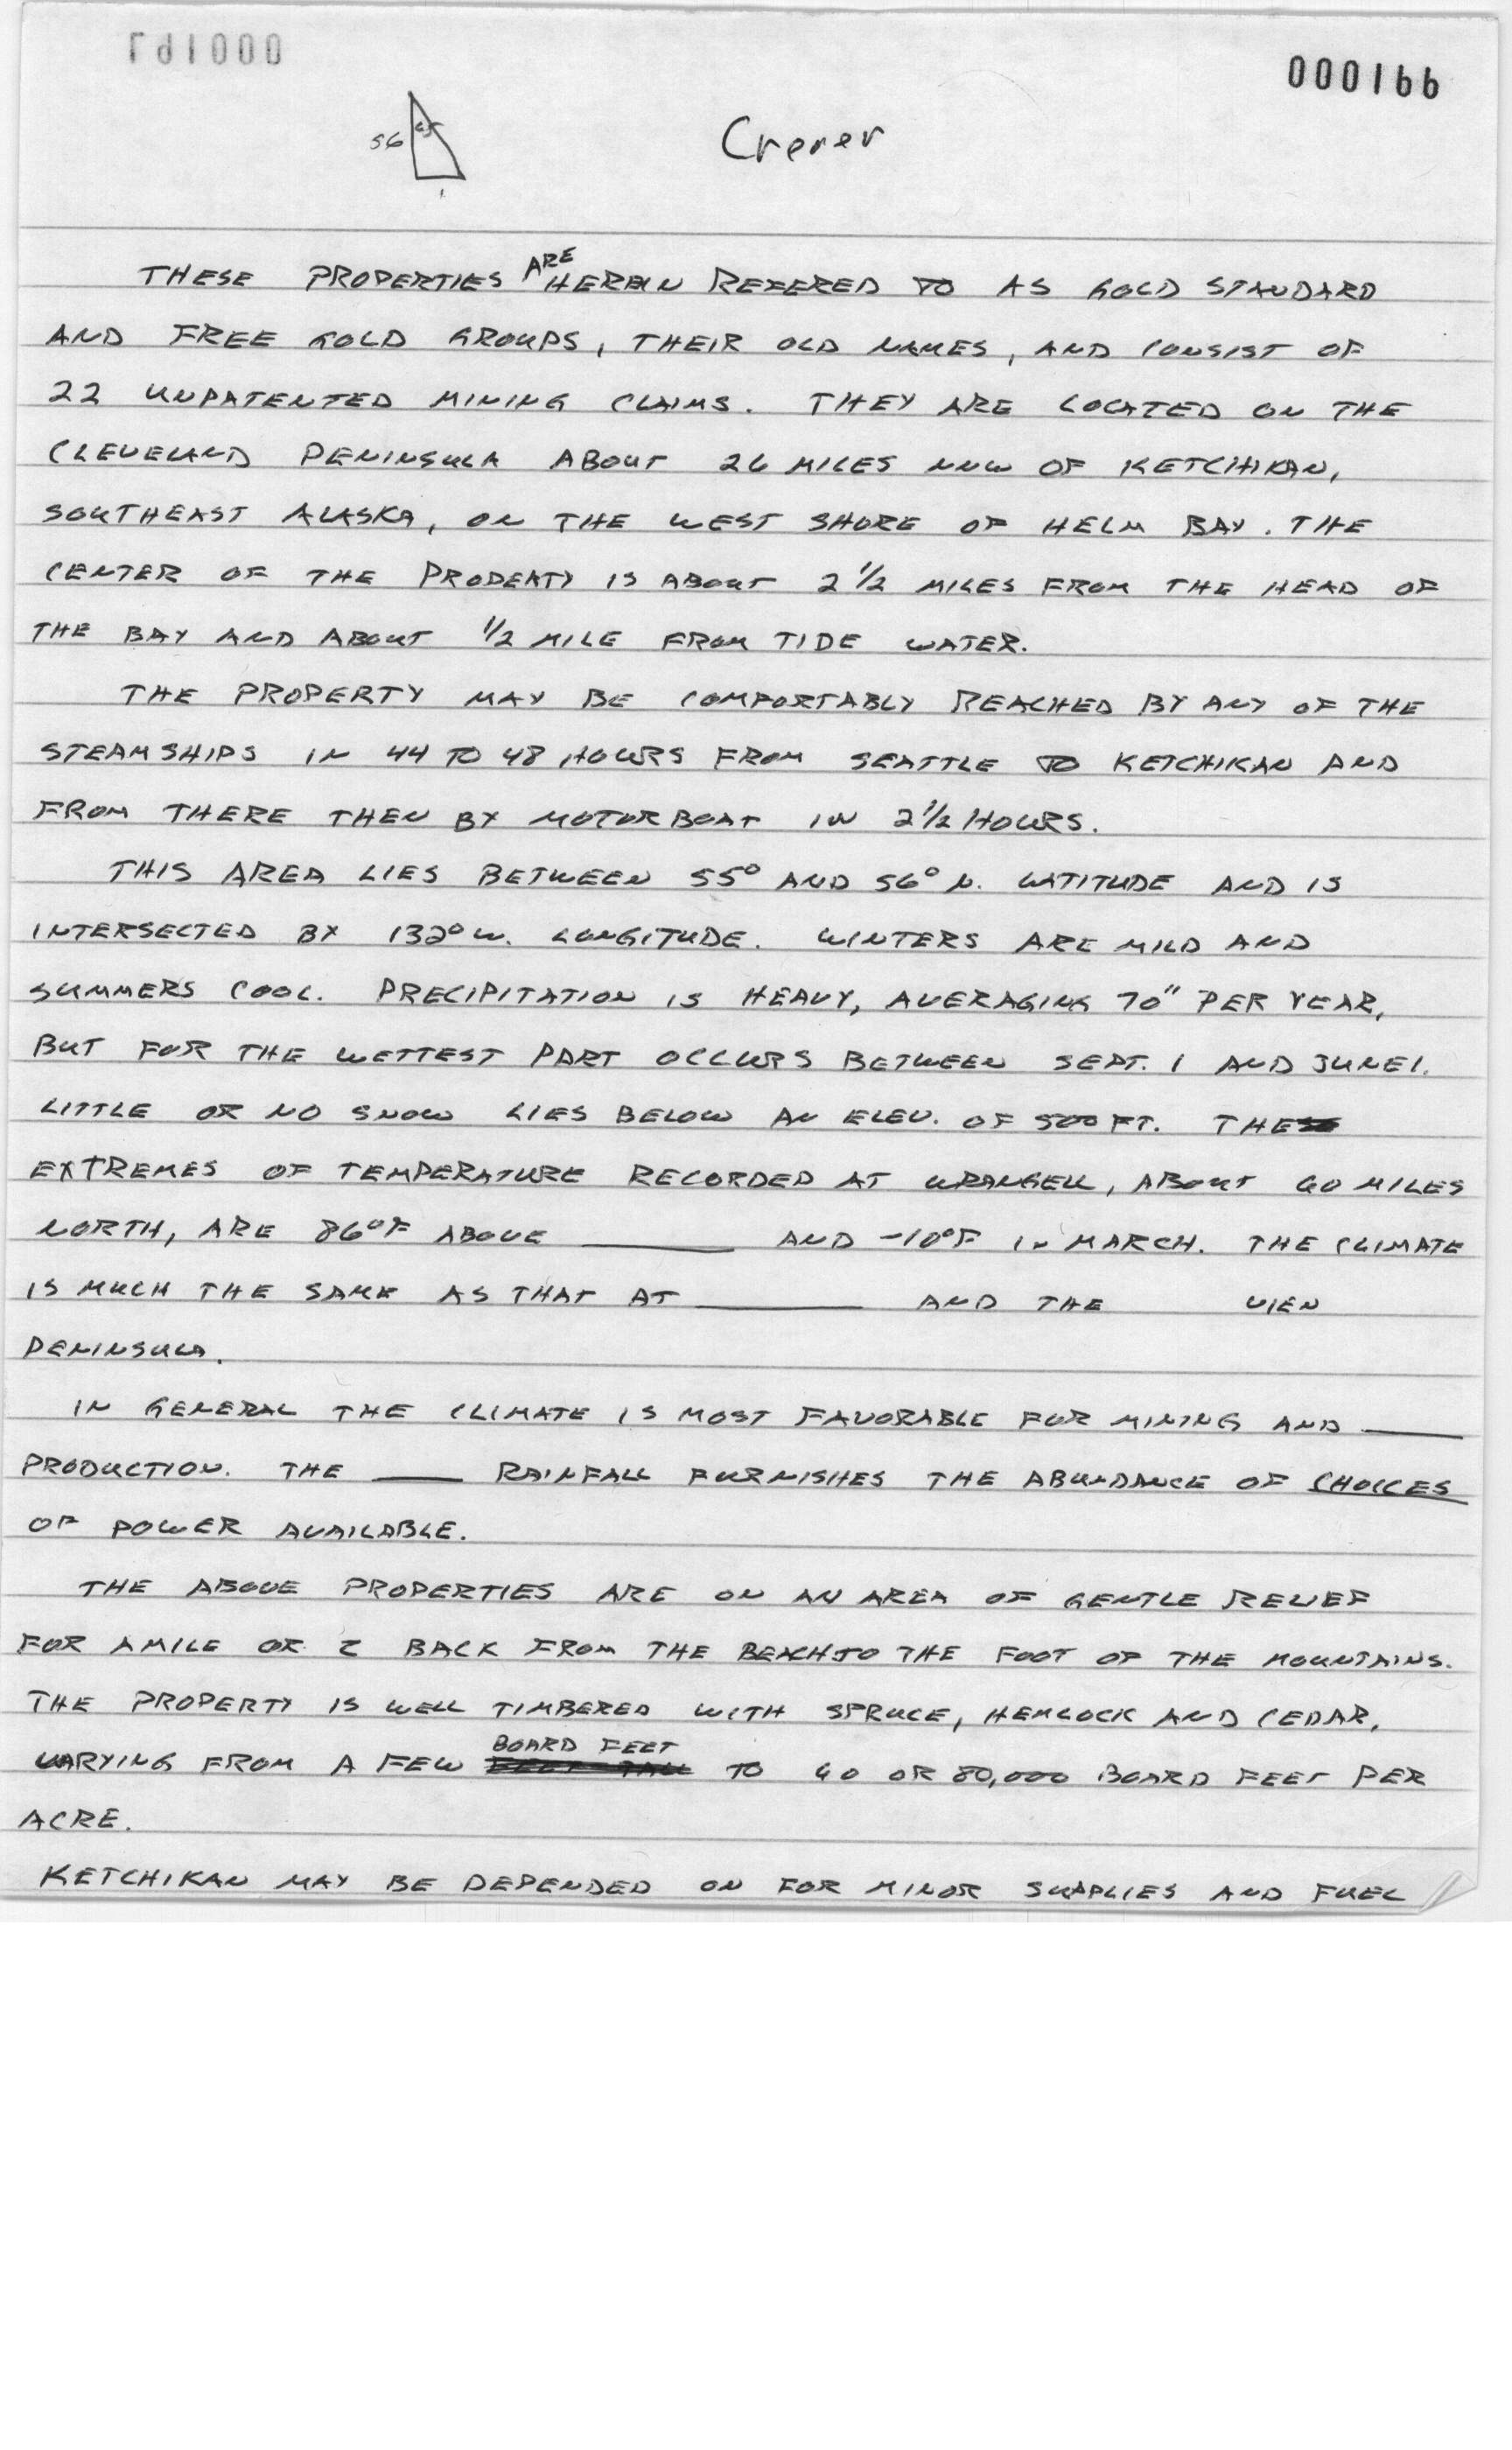 000166
56
Crerer
ARE
THESE PROPERTIES HEREIN REFERED TO AS GOLD STANDARD
AND FREE GOLD GROUPS, THEIR OLD NAMES, AND CONSIST OF
22 UNPATENTED MINING CLAIMS. THEY ARE LOCATED ON THE
CLEVELAND PENINSULA ABOUT 26 MILES NNW OF KETCHIKAN,
SOUTHEAST ALASKA, ON THE WEST SHORE OF HELM BAY. THE
CENTER OF THE PROPEATY IS ABOUT 2 1/2 MILES FROM THE HEAD OF
THE BAY AND ABOUT 1/2 MILE FROM TIDE WATER.
THE PROPERTY MAY BE COMFORTABLY REACHED BY ANY OF THE
STEAMSHIPS IN 44 TO 48 HOURS FROM SEATTLE TO KETCHIKAN AND
FROM THERE THEN BY MOTORBOAT IN 2 1/2 HOURS.
THIS AREA LIES BETWEEN 55° AND 56° N. LATITUDE AND IS
INTERSECTED BY 132° W. LONGITUDE. WINTERS ARE MILD AND
SUMMERS COOL. PRECIPITATION IS HEAVY, AVERAGING 70" PER YEAR,
BUT FOR THE WETTEST PART OCCURS BETWEEN SEPT. 1 AND JUNE 1.
LITTLE OR NO SNOW LIES BELOW AN ELEV. OF 500 FT. THE
EXTREMES OF TEMPERATURE RECORDED AT WRANGELL, ABOUT 60 MILES
NORTH, ARE 86°F ABOVE ______ AND -10°F IN MARCH. THE CLIMATE
IS MUCH THE SAME AS THAT AT ______ AND THE VIEN
PENINSULA.
IN GENERAL THE CLIMATE IS MOST FAVORABLE FOR MINING AND ____
PRODUCTION. THE ____ RAINFALL FURNISHES THE ABUNDANCE OF CHOICES
OF POWER AVAILABLE.
THE ABOVE PROPERTIES ARE ON AN AREA OF GENTLE RELIEF
FOR A MILE OR 2 BACK FROM THE BEACH TO THE FOOT OF THE MOUNTAINS.
THE PROPERTY IS WELL TIMBERED WITH SPRUCE, HEMLOCK AND CEDAR,
BOARD FEET
VARYING FROM A FEW TO 60 OR 80,000 BOARD FEET PER
ACRE.
KETCHIKAN MAY BE DEPENDED ON FOR MINOR SUPPLIES AND FUEL